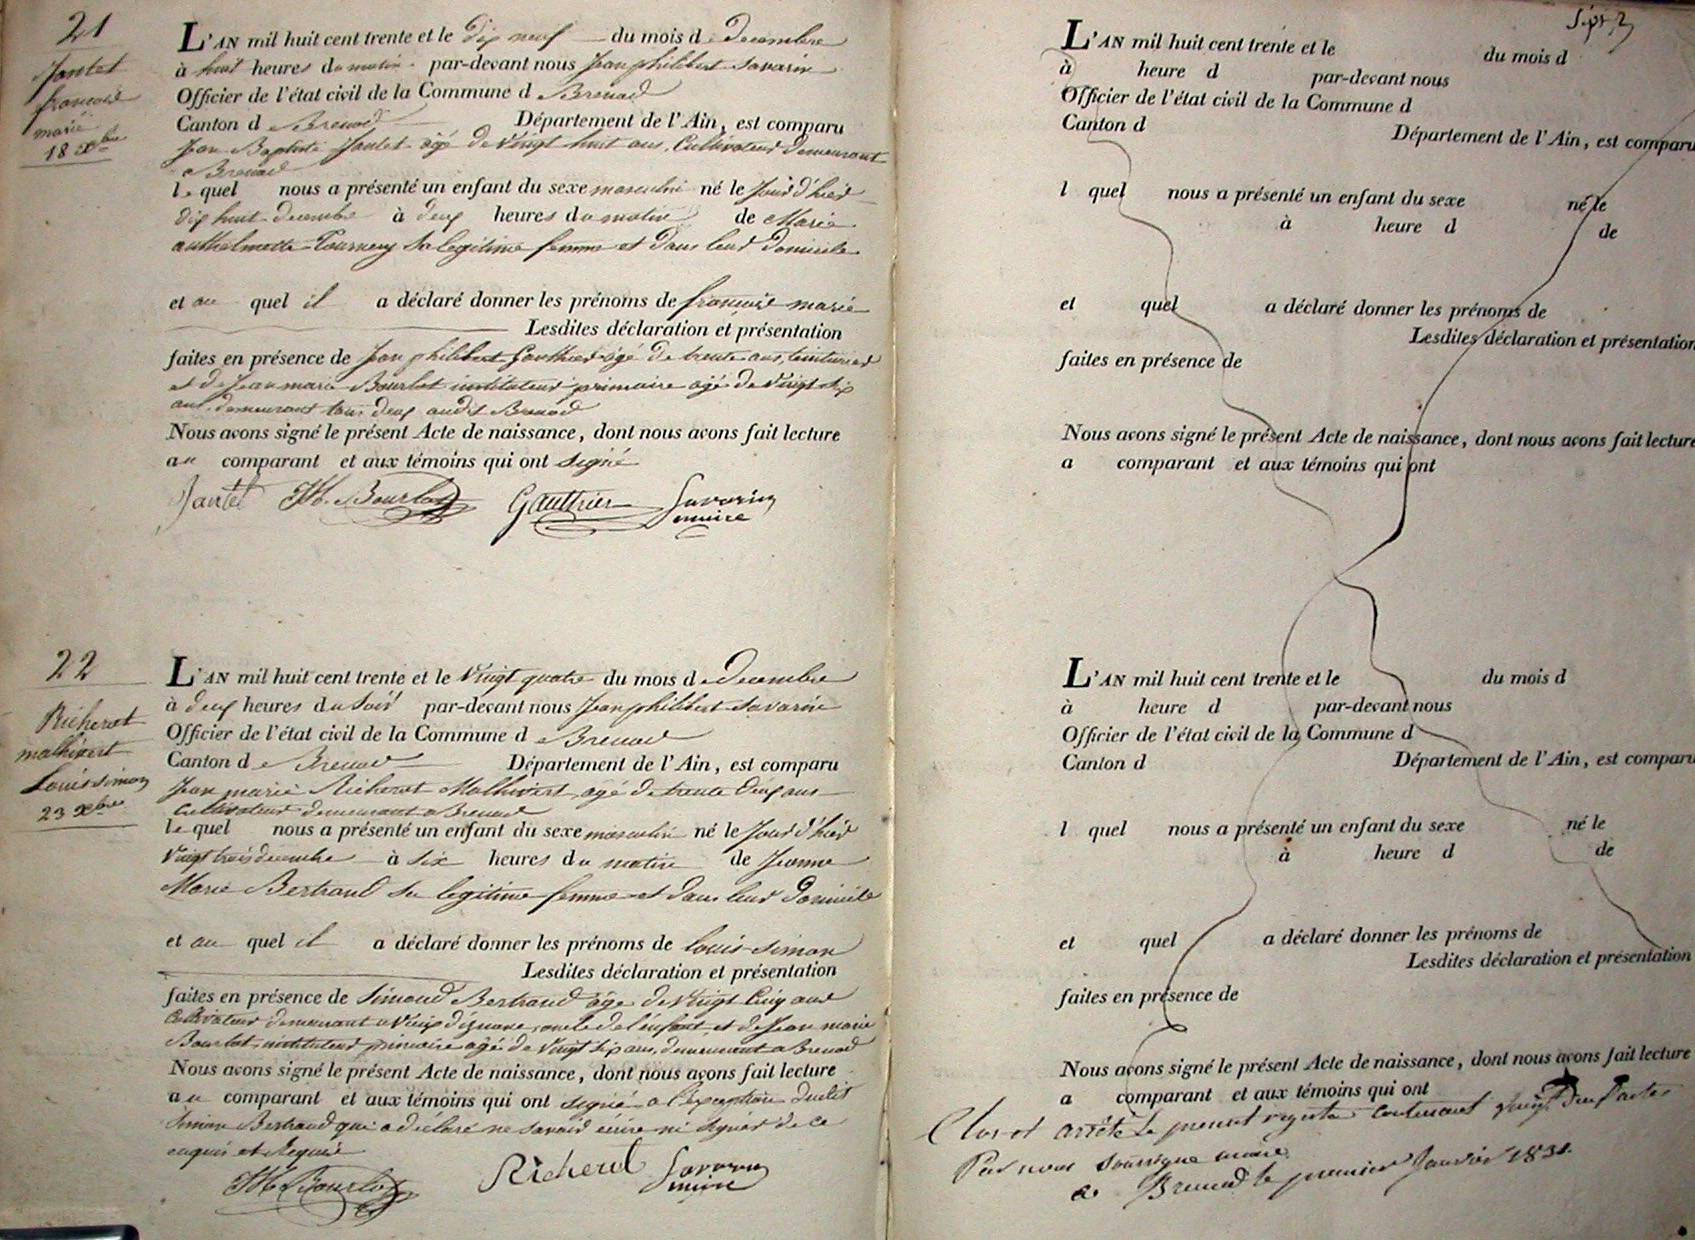 21
Jantet
françois
marie
18 Xbre
L'AN mil huit cent trente et le dix neuf du mois de decembre
à huit heures du matin par-devant nous Jean philibert Savarin
Officier de l'état civil de la Commune de Brenod
Canton de Brenod Département de l'Ain, est comparu
Jean Baptiste Jantet âgé de Vingt huit ans, Cultivateur demeurant
a Brenod
lequel nous a présenté un enfant du sexe masculin né le Jour d'hier
dix huit decembre à deux heures du matin de Marie
anthelmette Tournery Sa legitime femme et dans leur domicile
et au quel il a déclaré donner les prénoms de françois marie
Lesdites déclaration et présentation
faites en présence de Jean philibert Gauthier âgé de trente ans, teinturier
et de Jean marie Bourlot instituteur primaire âgé de Vingt six
ans, demeurant tous deux audit Brenod
Nous avons signé le présent Acte de naissance, dont nous avons fait lecture
au comparant et aux témoins qui ont signé
Jantet Bourlot Gauthier Savarin
maire
22
Richerot
mathivert
Louis simon
23 Xbre
L'AN mil huit cent trente et le Vingt quatre du mois de decembre
à deux heures du Soir par-devant nous Jean philibert Savarin
Officier de l'état civil de la Commune de Brenod
Canton de Brenod Département de l'Ain, est comparu
Jean marie Richerot Mathivert, âgé de trente deux ans
Cultivateur demeurant a Brenod
lequel nous a présenté un enfant du sexe masculin né le Jour d'hier
Vingt trois decembre à six heures du matin de Jeanne
Marie Bertrand Sa legitime femme et dans leur domicile
et au quel il a déclaré donner les prénoms de Louis-Simon
Lesdites déclaration et présentation
faites en présence de Simond Bertrand âge de Vingt Cinq ans
Cultivateur demeurant a Vieux d'izenave, oncle de l'enfant, et de Jean marie
Bourlot, instituteur primaire âgé de Vingt six ans, demeurant a Brenod
Nous avons signé le présent Acte de naissance, dont nous avons fait lecture
au comparant et aux témoins qui ont signé a l'exception dudit
Simon Bertrand qui a déclaré ne savoir écrire ni signer de ce
enquis et Requis
Bourlot Richerot Savarin
maire
L'AN mil huit cent trente et le du mois d
à heure d par-devant nous
Officier de l'état civil de la Commune d
Canton d
Département de l'Ain, est comparu
l quel nous a présenté un enfant du sexe né le
à heure d de
et quel a déclaré donner les prénoms de
Lesdites déclaration et présentation
faites en présence de
Nous avons signé le présent Acte de naissance, dont nous avons fait lecture
a comparant et aux témoins qui ont
L'AN mil huit cent trente et le du mois d
à heure d par-devant nous
Officier de l'état civil de la Commune d
Canton d Département de l'Ain, est comparu
l quel nous a présenté un enfant du sexe né le
à heure d de
et quel a déclaré donner les prénoms de
Lesdites déclaration et présentation
faites en présence de
Nous avons signé le présent Acte de naissance, dont nous avons fait lecture
a comparant et aux témoins qui ont
Clos et arrêté Le present registre contenant Vingt deux actes
Par nous Soussigné maire
a Brenod le premier Janvier 1831